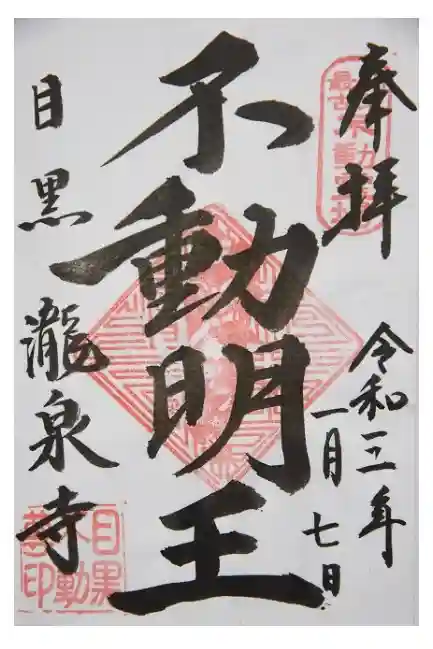 奉拝
令和三年
一月七日
不動明王
目黒
瀧泉寺
目黒
不動
尊印